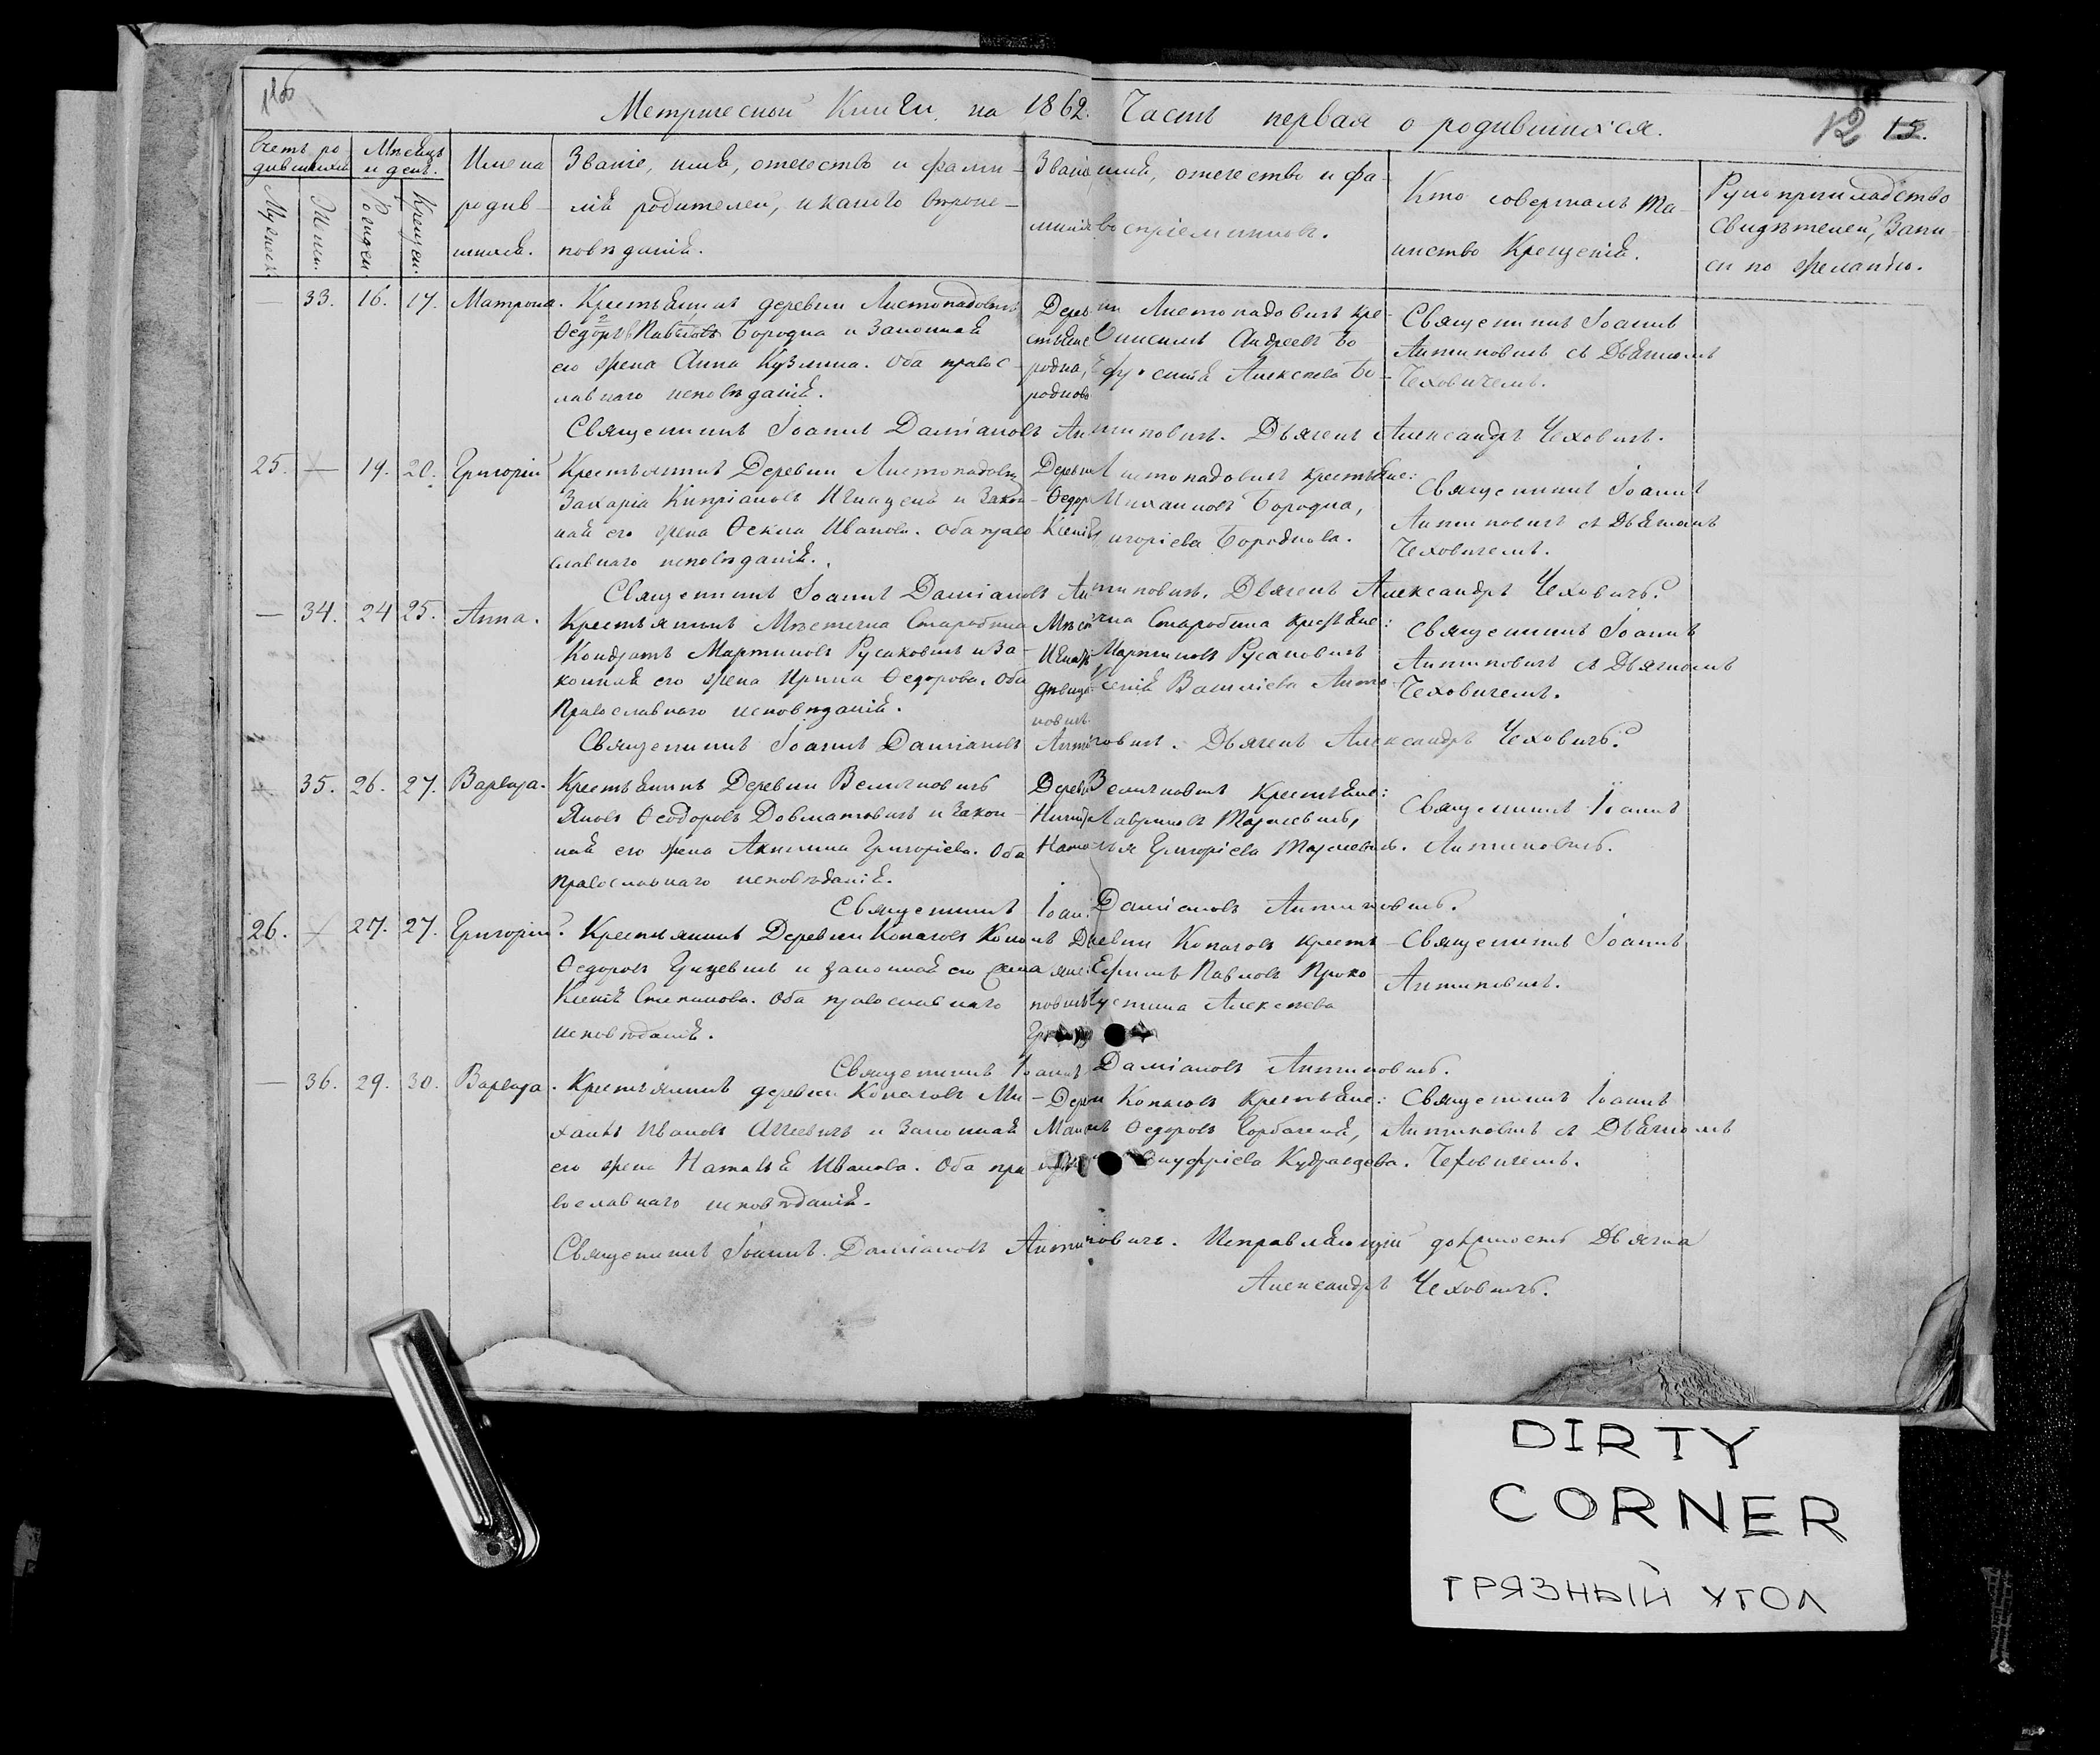 Метрической Книги на 1862. Часть первая о родившихся.
12 15.
Счетъ ро
дившихся
Мужеска
Женск.
Мѣсяцъ
и день.
Рожден.
Крещен.
Имена
родив-
шихся.
Званіе, имя, отечество и фами-
лія родителей, и какого вѣроис-
повѣданія.
Званіе, имя, отечество и фа-
милія воспріемниковъ.
Кто совершалъ та-
инство Крещенія.
Рукоприкладство
свидѣтелей, Запи-
си по желанію.
— 33. 16. 17. Матрона.
Крестьянинъ деревни Листопадовичъ
Ѳедоръ Павловъ Бородка и Законная
его жена Анна Кузмина. Оба правос-
лавнаго исповѣданія.
Деревни Листопадовичъ кре-
стьяне Онисимъ Андреевъ Бо
родка, Алексѣева Бо-
родкова
Священникъ Іоаннъ
Антиповичъ съ Дьячкомъ
Чеховичемъ.
Священникъ Іоаннъ Даміановъ Антиповичъ. Дьячекъ Александръ Чеховичъ.
25. — 19. 20. Григорій
Крестьянинъ Деревни Листопадовичъ
Захарія Кипріановъ и Закон-
ная его жена Ѳекла Иванова. Оба право
славнаго исповѣданія.
Деревни Листопадовичъ крестьяне:
Ѳедоръ Михаиловъ Бородка,
Ксенія Григоріева Бородкова.
Священникъ Іоаннъ
Антиповичъ съ Дьячкомъ
Чеховичемъ.
Священникъ Іоаннъ Даміановъ Антиповичъ. Дьячекъ Александръ Чеховичъ.
— 34. 24 25. Анна.
Крестьянинъ Мѣстечка Старобина
Кондратъ Мартиновъ Русаковичъ и За-
конная его жена Ирина Ѳедорова. Оба
Православнаго исповѣданія.
Мѣстечка Старобина крестьяне:
Игнатъ Мартиновъ Русаковичъ
дѣвица Ксенія Василіева Анти-
повичъ.
Священникъ Іоаннъ
Антиповичъ съ Дьячкомъ
Чеховичемъ.
Священникъ Іоаннъ Даміановъ Антиповичъ. Дьячекъ Александръ Чеховичъ.
35. 26. 27. Варвара.
Крестьянинъ Деревни Величковичъ
Яковъ Ѳеодоровъ Довматовичъ и Закон-
ная его жена Акилина Григоріева. Оба
Православнаго исповѣданія.
Деревни Величковичъ Крестьяне:
Лавриновъ
Наталья Григоріева
Священникъ Іоаннъ
Антиповичъ.
Священникъ Іоаннъ Даміановъ Антиповичъ.
26. 27. 27. Григорій.
Крестьянинъ Деревни Копачовъ
Ѳедоровъ Грицевичъ и законная его жена
Ксенія Степанова. Оба православнаго
исповѣданія.
Деревни Копачовъ кресть-
яне: Ефимъ Павловъ Проко
повичъ Алексѣева
Священникъ Іоаннъ
Антиповичъ.
Священникъ Іоаннъ Даміановъ Антиповичъ.
— 36. 29. 30. Варвара.
Крестьянинъ деревни Копачовъ Ми-
хаилъ Ивановъ и Законная
его жена Наталья Иванова. Оба пра
вославнаго исповѣданія.
Деревни Копачовъ Крестьяне:
Ѳедоровъ Горбачевъ,
Онуфріева Кудравцева.
Священникъ Іоаннъ
Антиповичъ съ Дьячкомъ
Чеховичемъ.
Священникъ Іоаннъ Даміановъ Антиповичъ. Исправляющій должность Дьячка
Александръ Чеховичъ.
DIRTY
CORNER
ГРЯЗНЫЙ УГОЛ